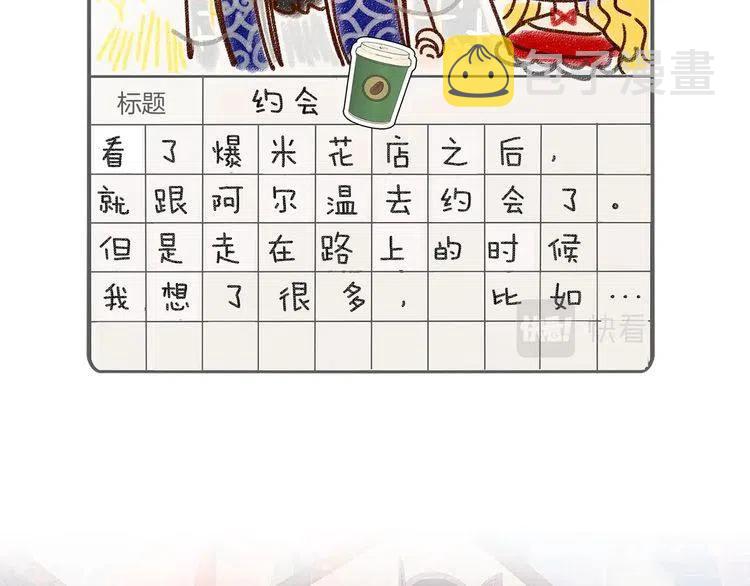 包子漫畫
标题 约会
看了爆米花店之后,
就跟阿尔温去约会了。
但是走在路上的时候
我想了很多, 比如…
快看